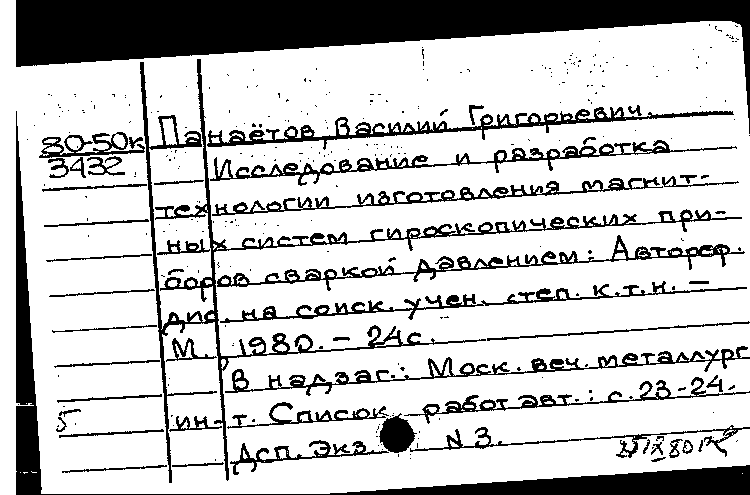 80-50к Панаётов, Василий Григорьевич.
3432 Исследование и разработка
технологии изготовления магнит-
ных систем гироскопических при-
боров сваркой давлением: Автореф.
дис. на соиск. учен. степ. к.т.н. —
М., 1980. – 24с.
В надзаг.: Моск. веч. металлург
5 ин-т. Список работ авт.: с. 23-24.
Дсп. Экз. N 3.